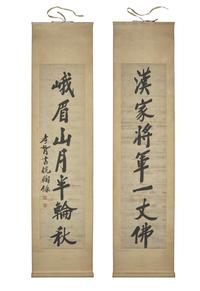 漢家將軍一丈佛
峨眉山月半輪秋
孝胥書